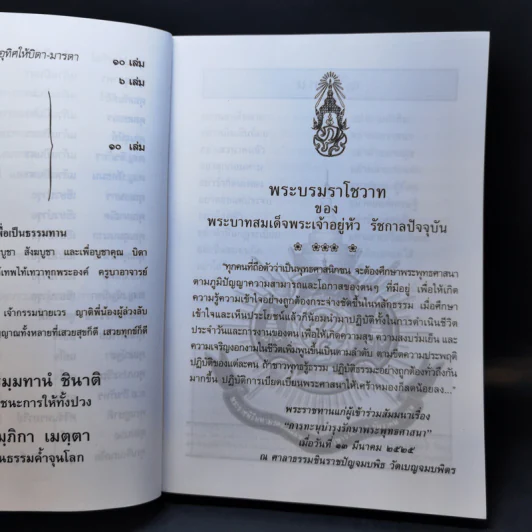 อุทิศให้บิดา-มารดา
๑๐ เล่ม
๖ เล่ม
๑๐ เล่ม
เพื่อเป็นธรรมทาน
บูชา สังฆบูชา และเพื่อบูชาคุณ บิดา
ให้เทวาทุกพระองค์ ครูบาอาจารย์
เจ้ากรรมนายเวร ญาติพี่น้องผู้ล่วงลับ
ญาณทั้งหลายที่เสวยสุขก็ดี เสวยทุกข์ก็ดี
ธมฺมทานํ ชินาติ
ชนะการให้ทั้งปวง
เมตฺตา
ธรรมค้ำจุนโลก
พระบรมราโชวาท
ของ
พระบาทสมเด็จพระเจ้าอยู่หัว รัชกาลปัจจุบัน
"ทุกคนที่ถือตัวว่าเป็นพุทธศาสนิกชน จะต้องศึกษาพระพุทธศาสนา
ตามภูมิปัญญาความสามารถและโอกาสของตนๆ ที่มีอยู่ เพื่อให้เกิด
ความรู้ความเข้าใจอย่างถูกต้องกระจ่างชัดขึ้นในหลักธรรม เมื่อศึกษา
เข้าใจและเห็นประโยชน์แล้วก็น้อมนำมาปฏิบัติทั้งในการดำเนินชีวิต
ประจำวันและการงานของตน เพื่อให้เกิดความสุข ความสงบร่มเย็น และ
ความเจริญงอกงามในชีวิตเพิ่มพูนขึ้นเป็นตามลำดับ ตามขีดความประพฤติ
ปฏิบัติของแต่ละคน ถ้าชาวพุทธรู้ธรรม ปฏิบัติธรรมอย่างถูกต้องทั่วถึงกัน
มากขึ้น ปฏิบัติการเบียดเบียนพระศาสนาให้เศร้าหมองก็ลดน้อยลง..."
พระราชทานแก่ผู้เข้าร่วมสัมมนาเรื่อง
"การทะนุบำรุงรักษาพระพุทธศาสนา"
เมื่อวันที่ ๑๓ มีนาคม ๒๕๒๕
ณ ศาลาธรรมชินราชปัญจมบพิธ วัดเบญจมบพิตร